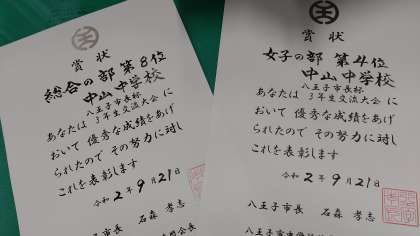 賞状
総合の部 第8位
中山中学校
八王子市長杯
3年生交流大会に
あなたは
おいて 優秀な成績をあげ
られたので その努力に対し
これを表彰します
令和2年9月21日
石森 孝志
賞状
女子の部 第4位
中山中学校
八王子市長杯
3年生交流大会に
あなたは
おいて 優秀な成績をあげ
られたので その努力に対し
これを表彰します
令和2年9月21日
八王子市長 石森 孝志